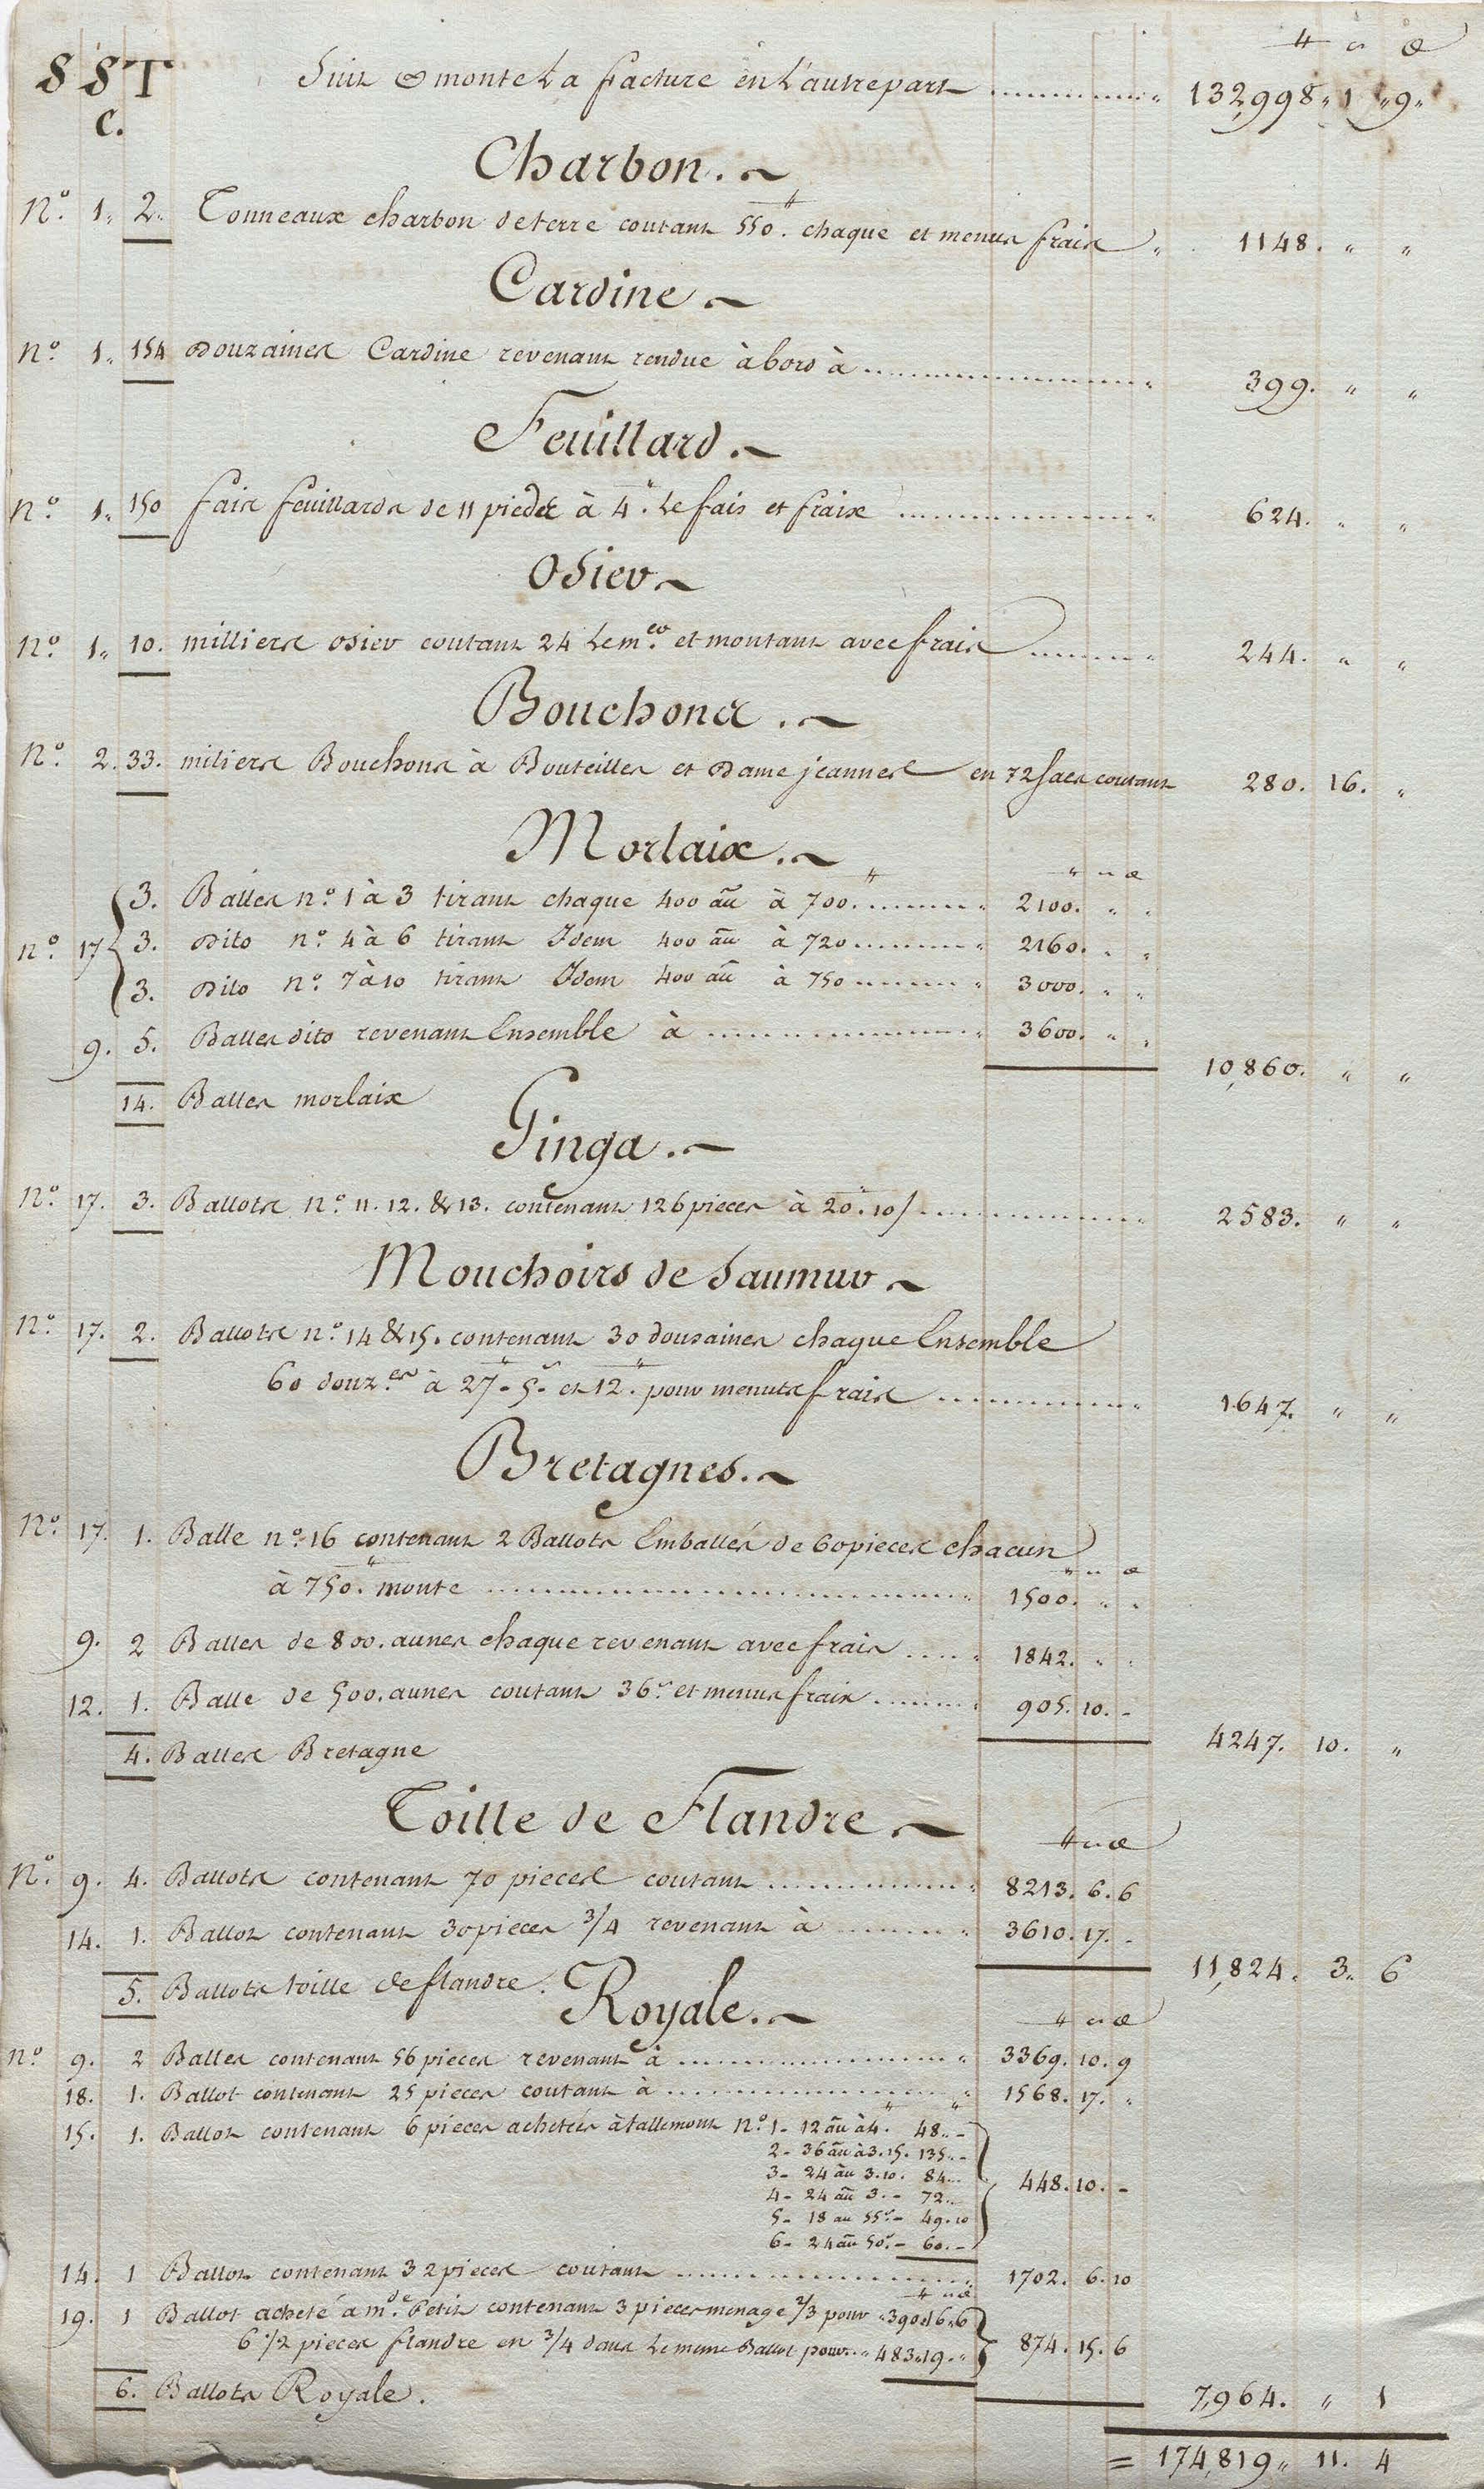 ₶ s d
S S T Suit & monte La facture en L'autre part 132,998 " 1 " 9 "
C.
Charbon.
N.o 1. 2. Tonneaux charbon de terre coutant 550.₶ chaque et menus frais " 1148. " "
Cardine
N.o 1. 154 Douzaines Cardine revenant rendue à bord à " 399. " "
Feuillard.
N.o 1. 150 faix feuillards de 11 pieds à 4.₶ Le fais et fraix " 624. " "
Osier
N.o 1. 10. milliers osier coutant 24 Le m.er et montant avec frais " 244. " "
Bouchons.
N.o 2. 33. miliers Bouchons à Bouteilles et Dame jeannes en 72 sacs coutant 280. 16. "
Morlaix.
₶ s d
3. Balles n.o 1 à 3 tirant chaque 400 au à 700.₶ " 2100. " "
N.o 17 3. Dito n.o 4 à 6 tirant Idem 400 au à 720 " 2160. " "
3. Dito n.o 7 à 10 tirant Idem 400 au à 750 " 3000. " "
9. 5. Balles dito revenant Ensemble à " 3600. " "
10,860. " "
14. Balles morlaix
Ginga.
N.o 17. 3. Ballots N.o 11. 12. & 13. contenant 126 pieces à 20.₶ 10 s " 2583. " "
Mouchoirs de Saumur
N.o 17. 2. Ballots n.o 14 & 15. contenant 30 dousaines chaque Ensemble
60 douz.es à 27.₶ 5.s et 12.₶ pour menuts frais " 1647. " "
Bretagnes.
N.o 17. 1. Balle n.o 16 contenant 2 Ballots Emballés de 60 pieces chacun
₶ s d
à 750.₶ monte " 1500. " "
9. 2 Balles de 800. aunes chaque revenant avec frais " 1842. " "
12. 1. Balle de 500. aunes coutant 36.s et menus frais " 905. 10. -
4247. 10. "
4. Balles Bretagne
Toille de Flandre
₶ s d
N.o 9. 4. Ballots contenant 70 pieces coutant " 8213. 6. 6
14. 1. Ballot contenant 30 pieces 3/4 revenant à " 3610. 17. -
11,824. 3. 6
5. Ballots toille de flandre.
Royale.
₶ s d
N.o 9. 2 Balles contenant 56 pieces revenant à " 3369. 10. 9
18. 1. Ballot contenant 25 pieces coutant à " 1568. 17. "
15. 1. Ballot contenant 6 pieces achetées à tallemont N.o 1 - 12 au à 4.₶ 48.₶ -
2 - 36 au à 3. 15. 135. -
3 - 24 au 3. 10. 84. -
448. 10. -
4 - 24 au 3. - 72. -
5 - 18 au 55.s - 49. 10
6 - 24 au 50.s - 60. -
14. 1 Ballot contenant 32 pieces coutant " 1702. 6. 10
₶ s d
19. 1 Ballot acheté a m.de Petit contenant 3 pieces menage 2/3 pour " 390. 16. 6
6 1/2 pieces flandre en 3/4 dans Le meme Ballot pour " 483. 19. " 874. 15. 6
6. Ballots Royale.
7,964. " 1
= 174,819 " 11. 4